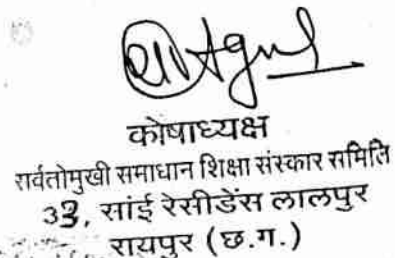 कोषाध्यक्ष
सर्वतोमुखी समाधान शिक्षा संस्कार समिति
33, सांई रेसीडेंस लालपुर
रायपुर (छ.ग.)